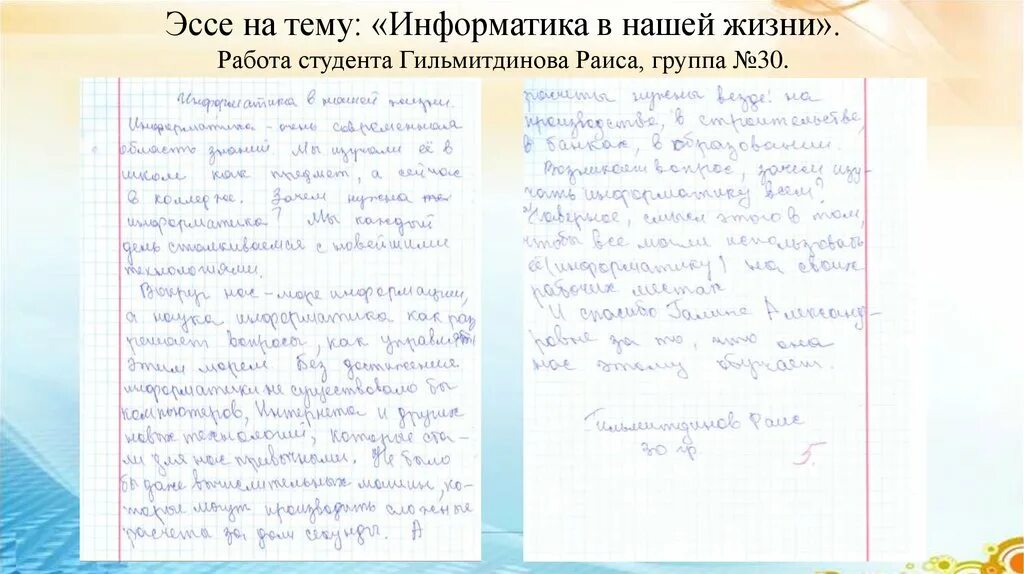 Эссе на тему: «Информатика в нашей жизни».
Работа студента Гильмитдинова Раиса, группа №30.
Информатика в нашей жизни.
Информатика - очень современная
область знаний. Мы изучали её в
школе как предмет, а сейчас
в колледже. Зачем нужна
информатика? Мы каждый
день сталкиваемся с новейшими
технологиями.
Вокруг нас - море информации,
а наука информатика как раз
решает вопросы, как управлять
этим морем. Без достижений
информатики не существовало бы
компьютеров, Интернета и других
новых технологий, которые ста-
ли для нас привычными. Не было
бы даже вычислительных машин, ко-
торые могут производить сложные
расчеты за доли секунды. А
расчеты нужны везде: на
производстве, в строительстве,
в банках, в образовании.
Возникает вопрос, зачем изу-
чать информатику всем?
Наверное, смысл этого в том,
чтобы все могли использовать
её (информатику) на своих
рабочих местах
И спасибо Галине Александ-
ровне за то, что она
нас этому обучает.
Гильмитдинов Раис
30 гр
5.